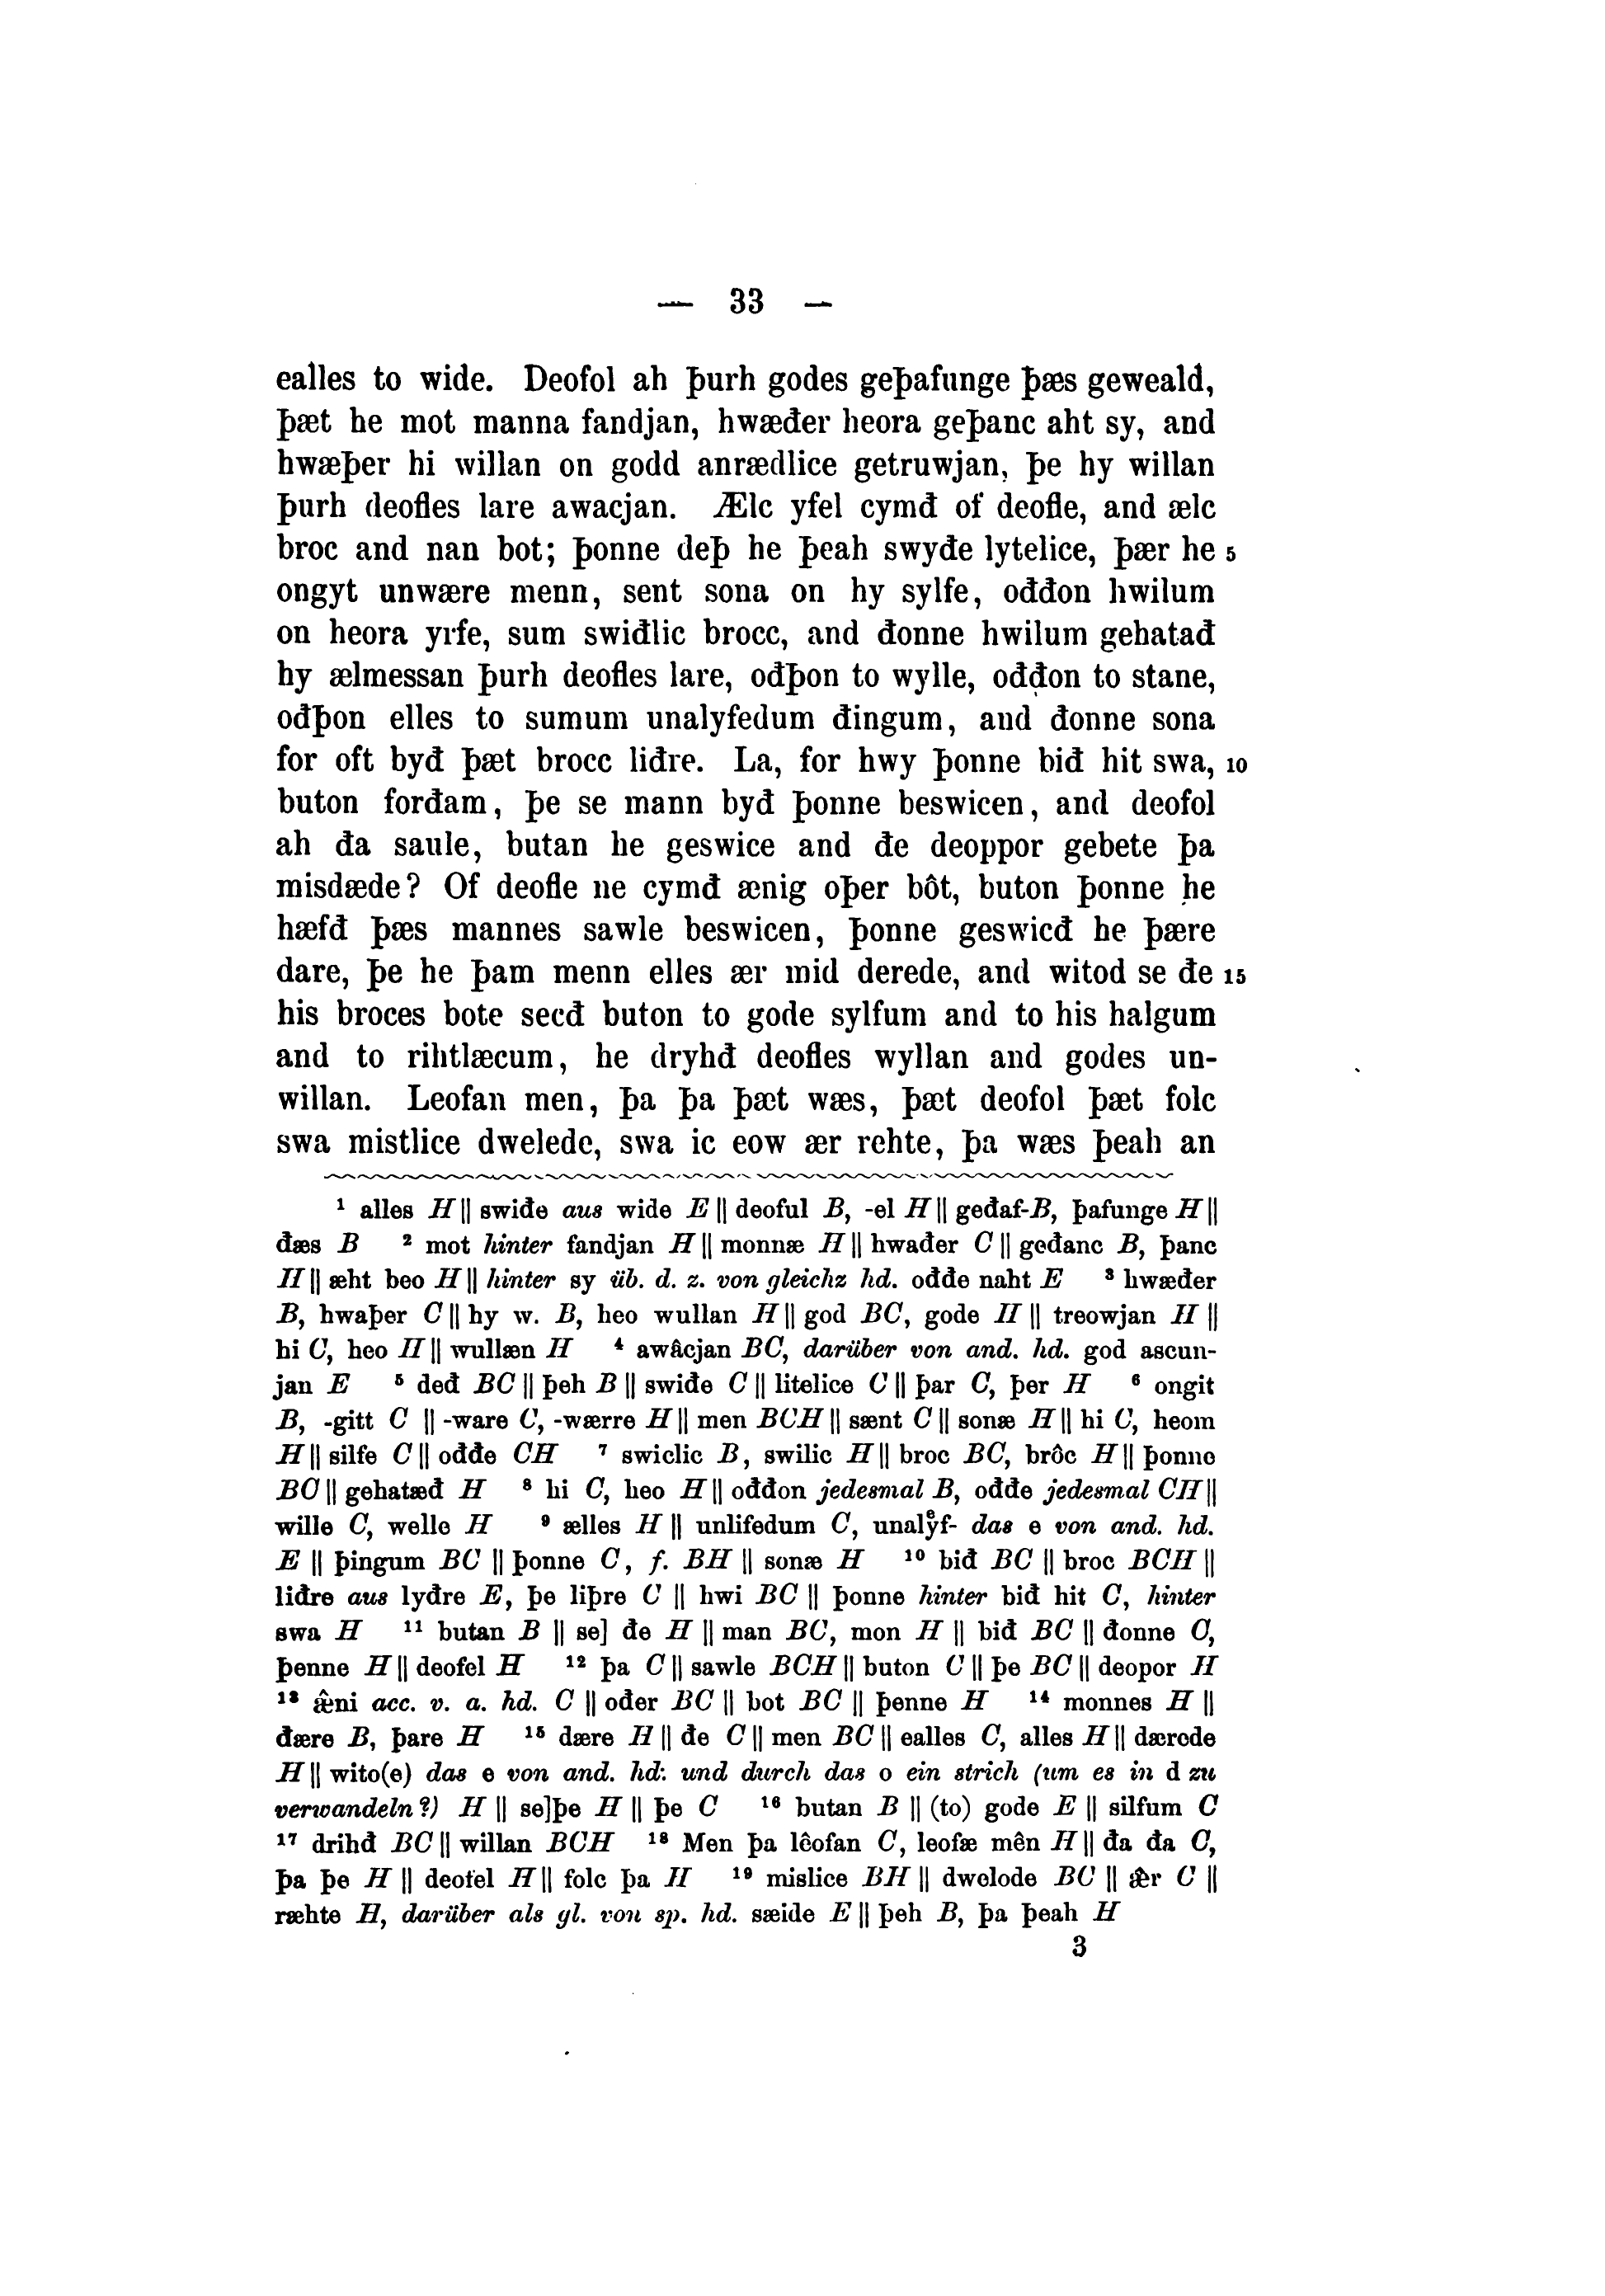 — 33 —
ealles to wide. Deofol ah þurh godes geþafunge þæs geweald,
þæt he mot manna fandjan, hwæđer heora geþanc aht sy, and
hwæþer hi willan on godd anrædlice getruwjan, þe hy willan
þurh deofles lare awacjan. Ælc yfel cymđ of deofle, and ælc
broc and nan bot; þonne deþ he þeah swyđe lytelice, þær he 5
ongyt unwære menn, sent sona on hy sylfe, ođđon hwilum
on heora yrfe, sum swiđlic brocc, and đonne hwilum gehatađ
hy ælmessan þurh deofles lare, ođþon to wylle, ođđon to stane,
ođþon elles to sumum unalyfedum đingum, and đonne sona
for oft byđ þæt brocc liđre. La, for hwy þonne biđ hit swa, 10
buton forđam, þe se mann byđ þonne beswicen, and deofol
ah đa saule, butan he geswice and đe deoppor gebete þa
misdæde? Of deofle ne cymđ ænig oþer bôt, buton þonne he
hæfđ þæs mannes sawle beswicen, þonne geswicđ he þære
dare, þe he þam menn elles ær mid derede, and witod se đe 15
his broces bote secđ buton to gode sylfum and to his halgum
and to rihtlæcum, he dryhđ deofles wyllan and godes un-
willan. Leofan men, þa þa þæt wæs, þæt deofol þæt folc
swa mistlice dwelede, swa ic eow ær rehte, þa wæs þeah an
¹ alles H || swiđe aus wide E || deoful B, -el H || geđaf-B, þafunge H ||
đæs B ² mot hinter fandjan H || monnæ H || hwađer C || geđanc B, þanc
H || æht beo H || hinter sy üb. d. z. von gleichz hd. ođđe naht E ³ hwæđer
B, hwaþer C || hy w. B, heo wullan H || god BC, gode H || treowjan H ||
hi C, heo H || wullæn H ⁴ awâcjan BC, darüber von and. hd. god ascun-
jan E ⁵ deđ BC || þeh B || swiđe C || litelice C || þar C, þer H ⁶ ongit
B, -gitt C || -ware C, -wærre H || men BCH || sænt C || sonæ H || hi C, heom
H || silfe C || ođđe CH ⁷ swiclic B, swilic H || broc BC, brôc H || þonne
BC || gehatæđ H ⁸ hi C, heo H || ođđon jedesmal B, ođđe jedesmal CH ||
wille C, welle H ⁹ ælles H || unlifedum C, unalyͤf- das e von and. hd.
E || þingum BC || þonne C, f. BH || sonæ H ¹⁰ biđ BC || broc BCH ||
liđre aus lyđre E, þe liþre C || hwi BC || þonne hinter biđ hit C, hinter
swa H ¹¹ butan B || se] đe H || man BC, mon H || biđ BC || đonne C,
þenne H || deofel H ¹² þa C || sawle BCH || buton C || þe BC || deopor H
¹³ æ̂ni acc. v. a. hd. C || ođer BC || bot BC || þenne H ¹⁴ monnes H ||
đære B, þare H ¹⁵ dære H || đe C || men BC || ealles C, alles H || dærede
H || wito(e) das e von and. hd: und durch das o ein strich (um es in d zu
verwandeln?) H || se]þe H || þe C ¹⁶ butan B || (to) gode E || silfum C
¹⁷ drihđ BC || willan BCH ¹⁸ Men þa lêofan C, leofæ mên H || đa đa C,
þa þe H || deofel H || folc þa H ¹⁹ mislice BH || dwelode BC || æ̂r C ||
ræhte H, darüber als gl. von sp. hd. sæide E || þeh B, þa þeah H
3